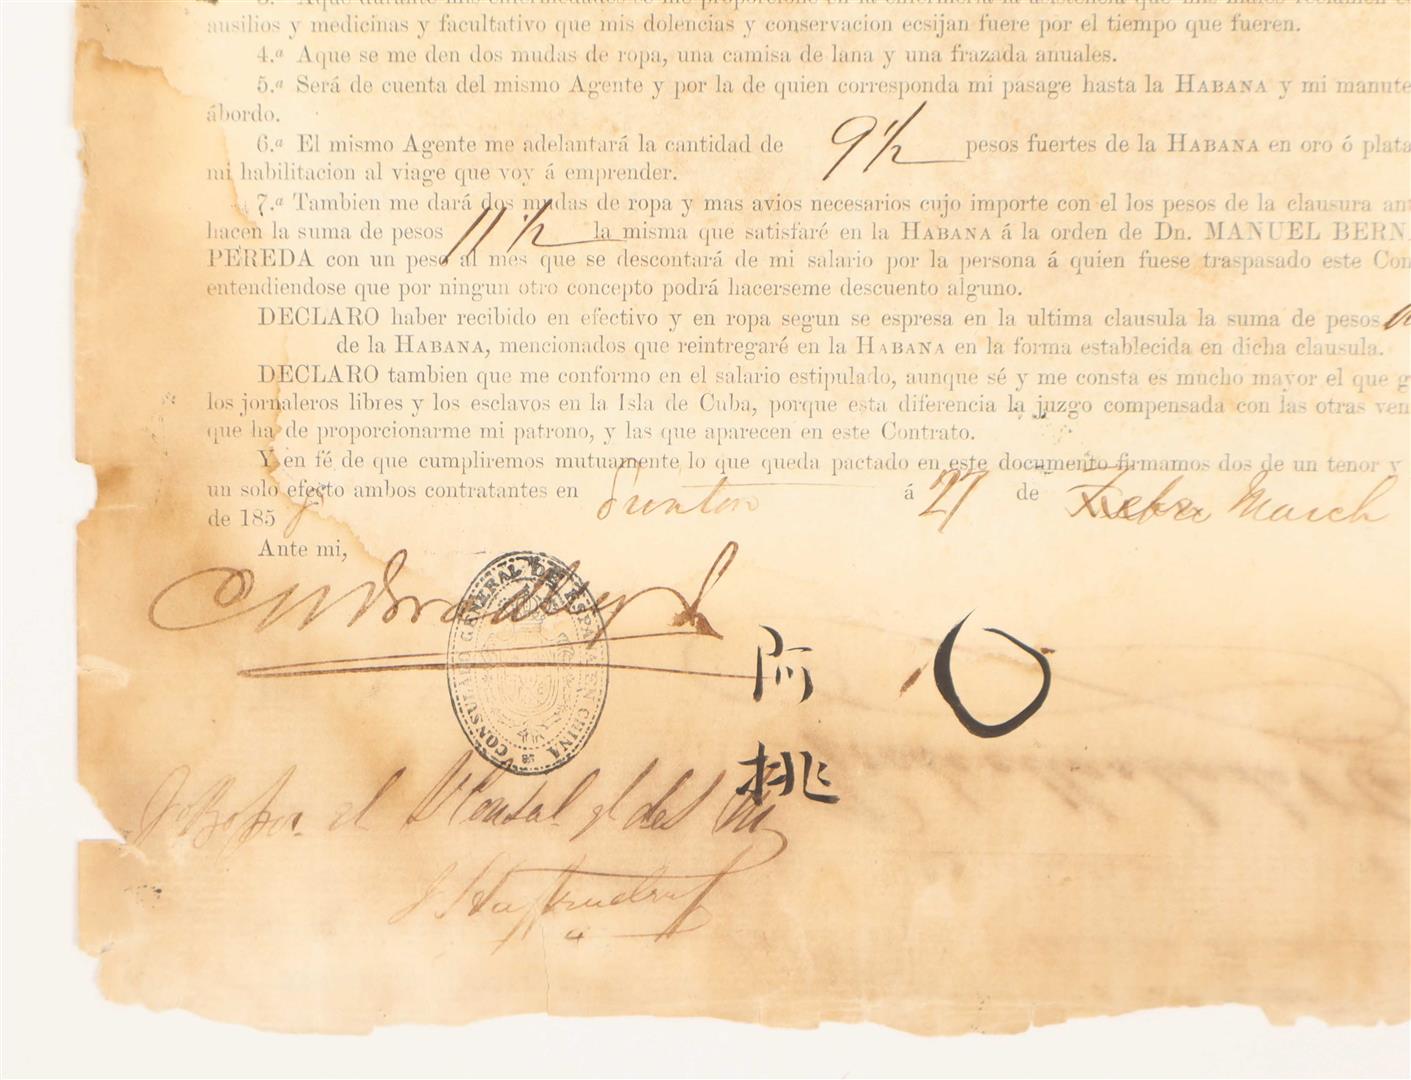 3.ª Aque durante mis enfermedades se me proporcione en la enfermería la asistencia que mis males reclamen
ausilios y medicinas y facultativo que mis dolencias y conservacion ecsijan fuere por el tiempo que fueren.
4.ª Aque se me den dos mudas de ropa, una camisa de lana y una frazada anuales.
5.ª Será de cuenta del mismo Agente y por la de quien corresponda mi pasage hasta la HABANA y mi manute
ábordo.
6.ª El mismo Agente me adelantará la cantidad de 9½ pesos fuertes de la HABANA en oro ó plata
mi habilitacion al viage que voy á emprender.
7.ª Tambien me dará dos mudas de ropa y mas avios necesarios cujo importe con el los pesos de la clausura ant
hacen la suma de pesos 11½ la misma que satisfaré en la HABANA á la orden de Dn. MANUEL BERN.
PEREDA con un peso al mes que se descontará de mi salario por la persona á quien fuese traspasado este Con
entendiendose que por ningun otro concepto podrá hacerseme descuento alguno.
DECLARO haber recibido en efectivo y en ropa segun se espresa en la ultima clausula la suma de pesos
de la HABANA, mencionados que reintegraré en la HABANA en la forma establecida en dicha clausula.
DECLARO tambien que me conformo en el salario estipulado, aunque sé y me consta es mucho mayor el que g
los jornaleros libres y los esclavos en la Isla de Cuba, porque esta diferencia la juzgo compensada con las otras ven
que ha de proporcionarme mi patrono, y las que aparecen en este Contrato.
Y en fé de que cumpliremos mutuamente lo que queda pactado en este documento firmamos dos de un tenor y
un solo efecto ambos contratantes en á 27 de March
de 1858
Ante mi,
CONSULADO GENERAL DE ESPAÑA EN CHINA
阿
桃
el